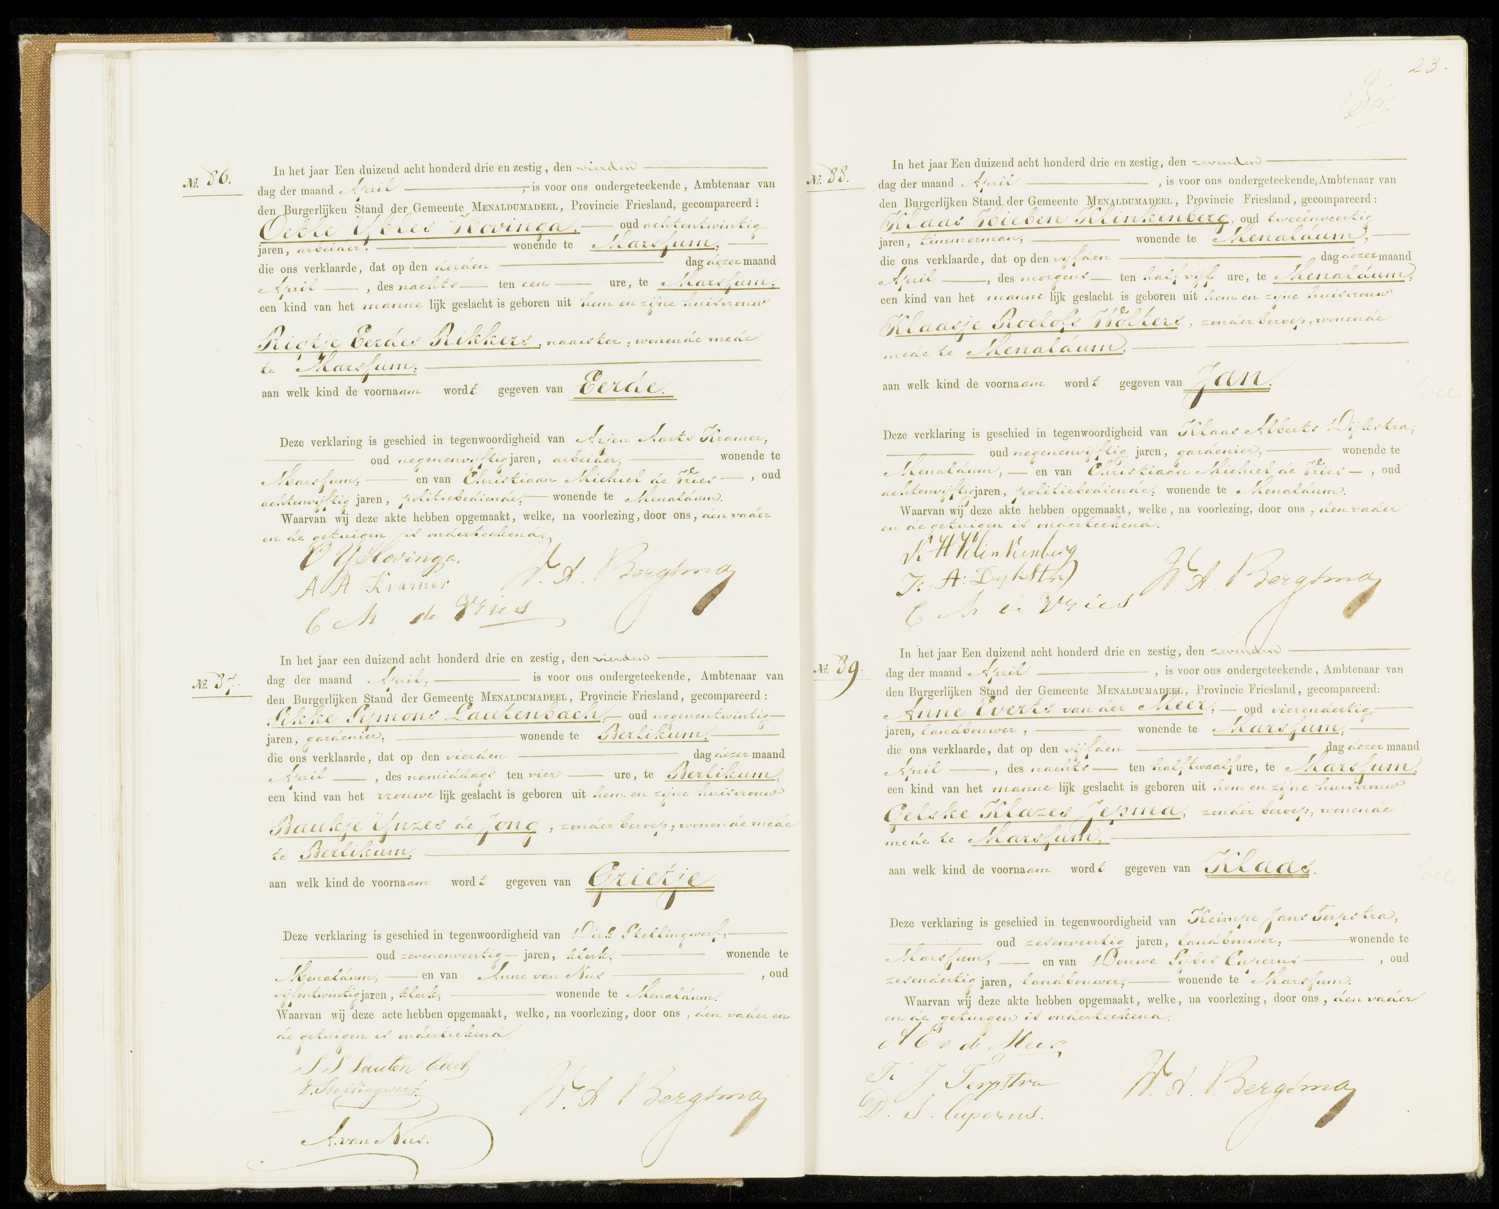 23.
№. 86.
In het jaar Een duizend acht honderd drie en zestig, den vierden
dag der maand April, is voor ons ondergeteekende, Ambtenaar van
den Burgerlijken Stand der Gemeente MENALDUMADEEL, Provincie Friesland, gecompareerd:
Oebele Ypkes Hovinga, oud achtentwintig
jaren, arbeider, wonende te Marssum,
die ons verklaarde, dat op den derden dag dezer maand
April, des nachts ten een ure, te Marssum,
een kind van het mannelijk geslacht is geboren uit hem en zijne huisvrouw
Rigtje Eerdes Rikkers, naaister, wonende mede
te Marssum,
aan welk kind de voornaam wordt gegeven van Eerde.
Deze verklaring is geschied in tegenwoordigheid van Arjen Aarts Kramer,
oud negenenvijftig jaren, arbeider, wonende te
Marssum, en van Christiaan Michiel de Vries, oud
achtenvijftig jaren, politiebediende, wonende te Menaldum.
Waarvan wij deze akte hebben opgemaakt, welke, na voorlezing, door ons, den vader
en de getuigen is onderteekend.
O Y Hovinga.
A A Kramer
C M de Vries
W. A. Bergsma
№. 87.
In het jaar een duizend acht honderd drie en zestig, den vierden
dag der maand April, is voor ons ondergeteekende, Ambtenaar van
den Burgerlijken Stand der Gemeente MENALDUMADEEL, Provincie Friesland, gecompareerd:
Sikke Symons Lautenbach, oud negenentwintig
jaren, gardenier, wonende te Berlikum,
die ons verklaarde, dat op den vierden dag dezer maand
April, des namiddags ten vier ure, te Berlikum,
een kind van het vrouwelijk geslacht is geboren uit hem en zijne huisvrouw
Baukje Ynzes de Jong, zonder beroep, wonende mede
te Berlikum,
aan welk kind de voornaam wordt gegeven van Grietje
Deze verklaring is geschied in tegenwoordigheid van Dirk Stellingwerf,
oud zevenenveertig jaren, klerk, wonende te
Menaldum, en van Anne van Nus, oud
vijfentwintig jaren, klerk, wonende te Menaldum.
Waarvan wij deze acte hebben opgemaakt, welke, na voorlezing, door ons, den vader en
de getuigen is onderteekend
S S Lautenbach
D. Stellingwerf.
A. van Nus.
W. A. Bergsma
№. 88.
In het jaar Een duizend acht honderd drie en zestig, den zevenden
dag der maand April, is voor ons ondergeteekende, Ambtenaar van
den Burgerlijken Stand der Gemeente MENALDUMADEEL, Provincie Friesland, gecompareerd:
Klaas Hieben Klinkenberg, oud tweeënveertig
jaren, timmerman, wonende te Menaldum,
die ons verklaarde, dat op den vijfden dag dezer maand
April, des morgens ten half vijf ure, te Menaldum,
een kind van het mannelijk geslacht is geboren uit hem en zijne huisvrouw
Klaasje Roelofs Wolters, zonder beroep, wonende
mede te Menaldum,
aan welk kind de voornaam wordt gegeven van Jan.
Deze verklaring is geschied in tegenwoordigheid van Klaas Alberts Dijkstra,
oud negenenvijftig jaren, gardenier, wonende te
Menaldum, en van Christiaan Michiel de Vries, oud
achtenvijftig jaren, politiebediende, wonende te Menaldum.
Waarvan wij deze akte hebben opgemaakt, welke, na voorlezing, door ons, den vader
en de getuigen is onderteekend.
K H Klinkenberg
K. A. Dijkstra
C M de Vries
W A Bergsma
№. 89.
In het jaar Een duizend acht honderd drie en zestig, den zevenden
dag der maand April, is voor ons ondergeteekende, Ambtenaar van
den Burgerlijken Stand der Gemeente MENALDUMADEEL, Provincie Friesland, gecompareerd:
Anne Everts van der Meer, oud vierendertig
jaren, landbouwer, wonende te Marssum,
die ons verklaarde, dat op den vijfden dag dezer maand
April, des nachts ten half twaalf ure, te Marssum,
een kind van het mannelijk geslacht is geboren uit hem en zijne huisvrouw
Gelske Klazes Jepma, zonder beroep, wonende
mede te Marssum,
aan welk kind de voornaam wordt gegeven van Klaas.
Deze verklaring is geschied in tegenwoordigheid van Keimpe Jans Terpstra,
oud zesenveertig jaren, landbouwer, wonende te
Marssum, en van Douwe Sykes Cuperus, oud
zesendertig jaren, landbouwer, wonende te Marssum.
Waarvan wij deze akte hebben opgemaakt, welke, na voorlezing, door ons, den vader
en de getuigen is onderteekend.
A E v d Meer
K J Terpstra
D. S. Cuperus.
W. A. Bergsma